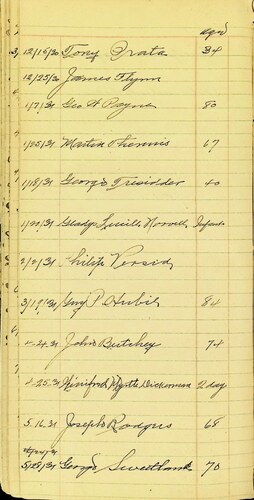 aged
12/15/30 Tony Prata 34
12/25/30 James Flynn
1/7/31 Geo A Payne 80
1/25/31 Martin Thennis 67
1/18/31 George Tresidder 40
1/20/31 Gladys Lucille Norvell Infant
2/2/31 Philip Versid
3/19/31 Guy P Hubil 84
4-24-31 John Butchey 74
4-25-31 Winifred Myrtle Dickerman 2 day
5-16-31 Joseph Rodgers 68
5/28/31 George Sweetland 70